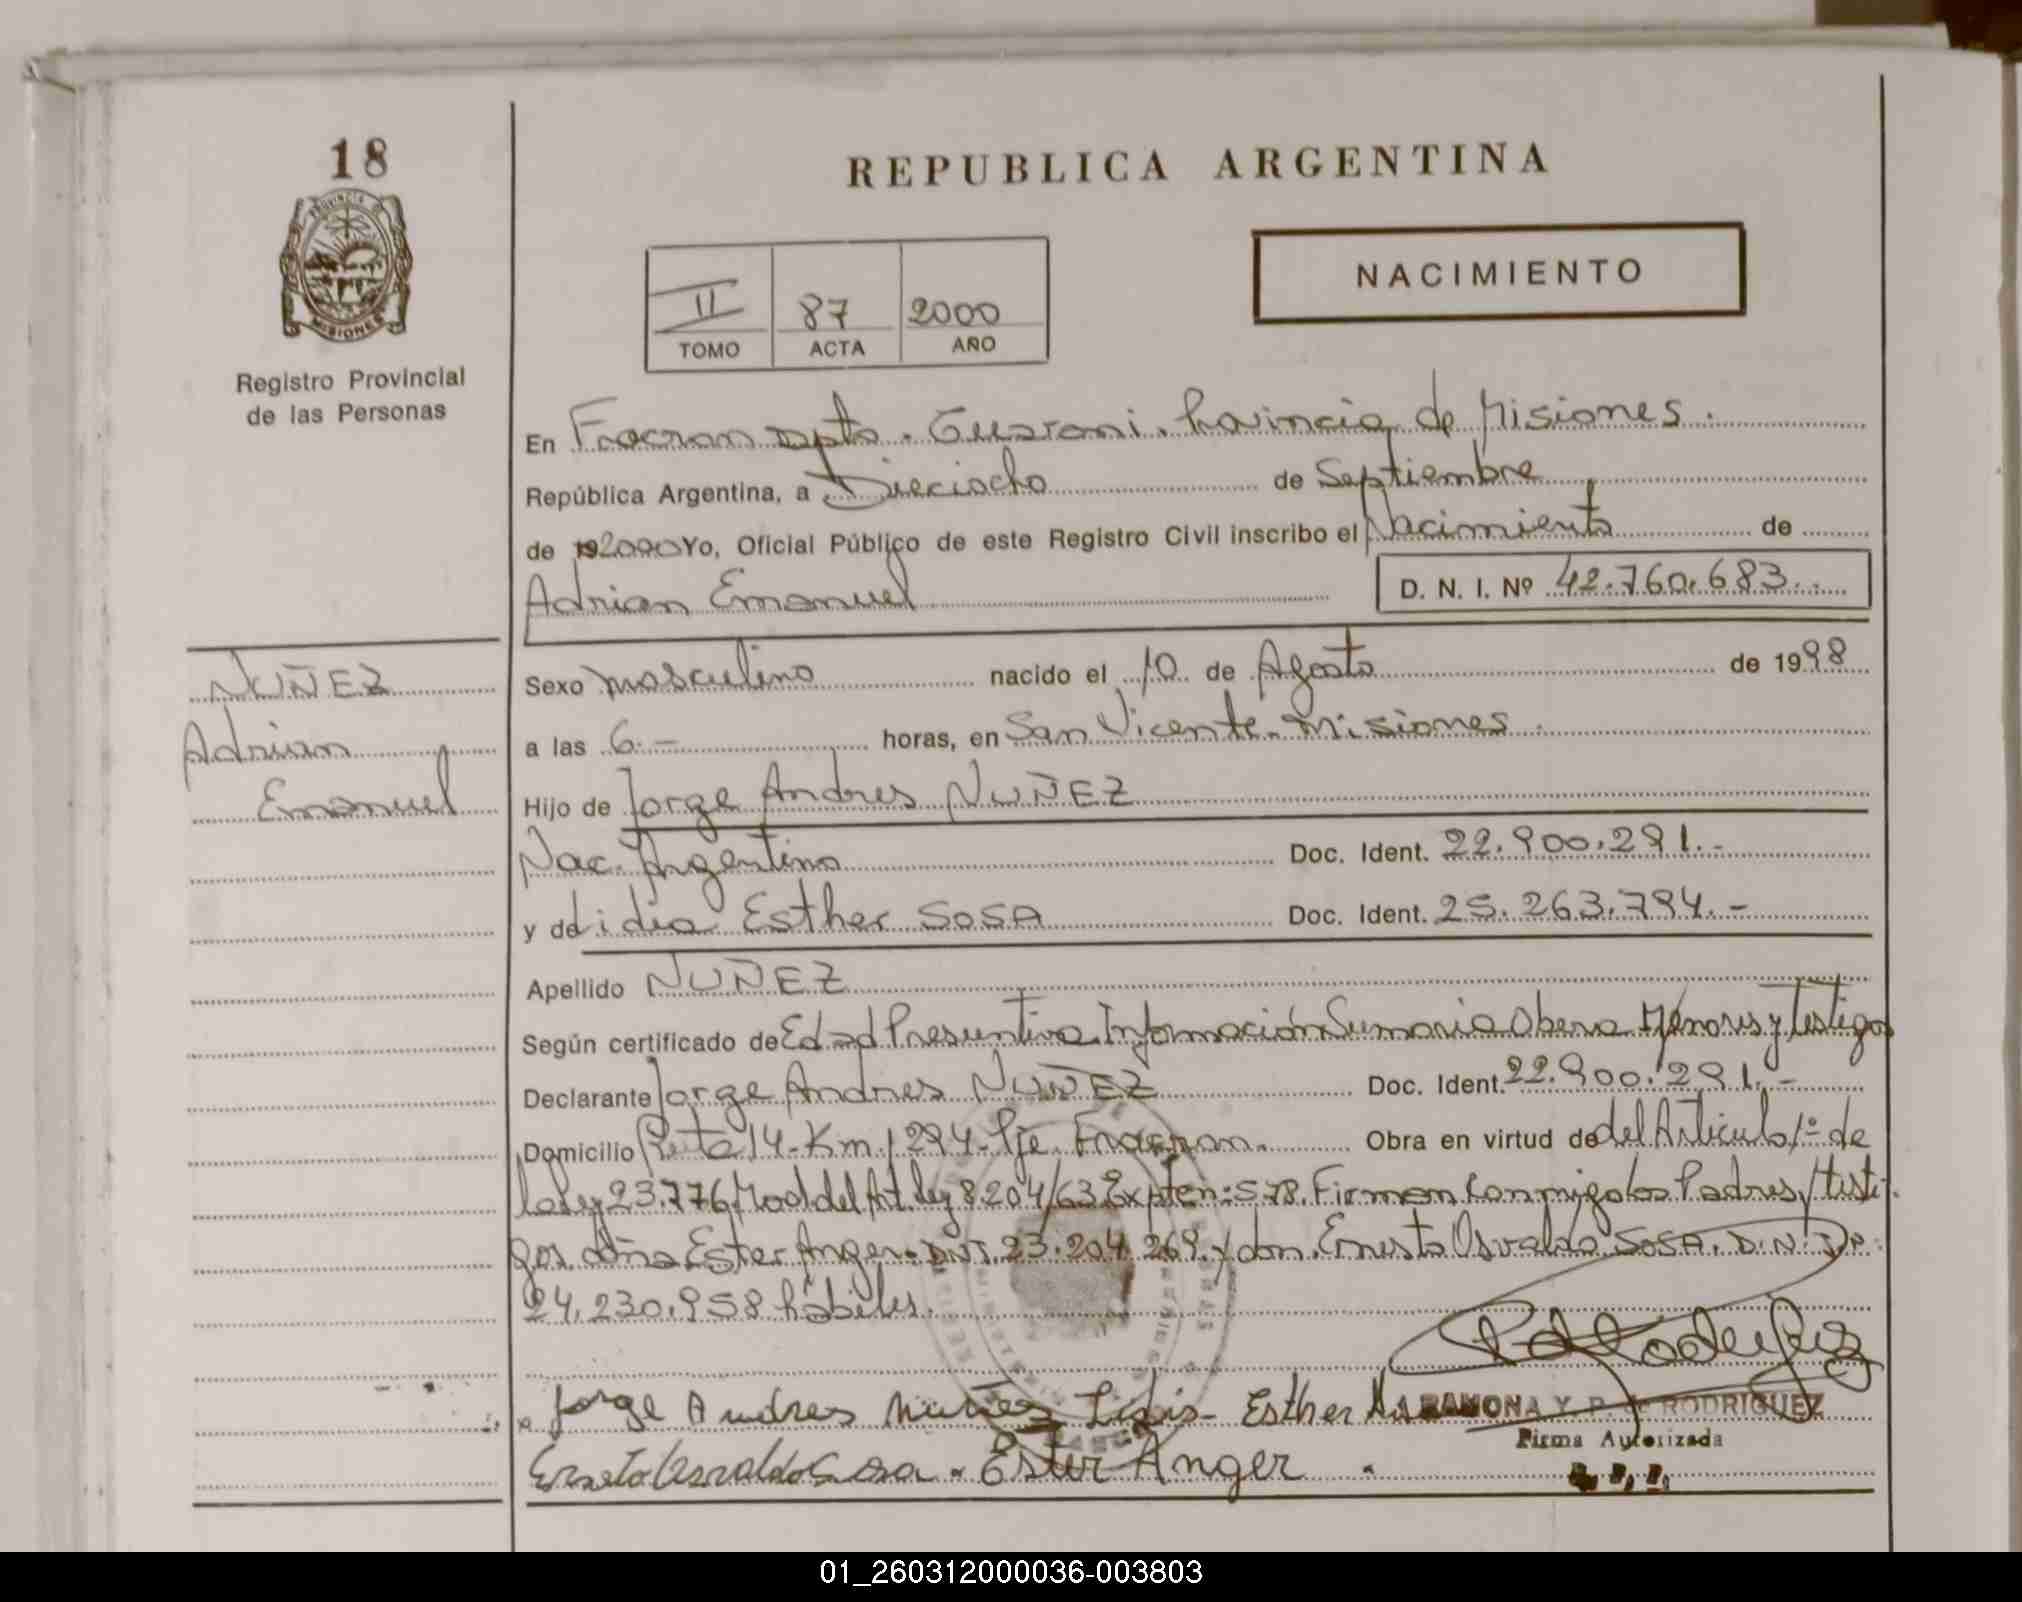 18
REPUBLICA ARGENTINA
PROVINCIA DE
MISIONES
NACIMIENTO
II 87 2000
TOMO ACTA AÑO
Registro Provincial
de las Personas
En Fracran Dpto. Guarani. Provincia de Misiones.
República Argentina, a Dieciocho de Septiembre
de 192000 Yo, Oficial Público de este Registro Civil inscribo el Nacimiento de
Adrian Emanuel D. N. I. Nº 42.760.683
NUÑEZ
Adrian
Emanuel
Sexo masculino nacido el 10 de Agosto de 1998
a las 6.- horas, en San Vicente. Misiones.
Hijo de Jorge Andres NUÑEZ
Nac. Argentino Doc. Ident. 22.900.291.-
y de Lidia Esther SOSA Doc. Ident. 25.263.794.-
Apellido NUÑEZ
Según certificado de Edad Presuntiva Información Sumaria Menores y Testigos
Declarante Jorge Andres NUÑEZ Doc. Ident. 22.900.291.-
Domicilio Ruta 14-Km. 1294-Pje. Fracran. Obra en virtud de del Articulo 1º de
la ley 23.776, Mod del Art. ley 8.204/63 Firman conmigo los Padres y testi-
gos doña Ester Anger. DNI. 23.204.269. y don Ernesto Osvaldo SOSA. D.N.I.
24.230.958 hábiles.
Jorge Andres Nuñez Lidia Esther
RAMONA Y. P. de RODRIGUEZ
Firma Autorizada
Ernesto Osvaldo Sosa. Ester Anger
01_260312000036-003803